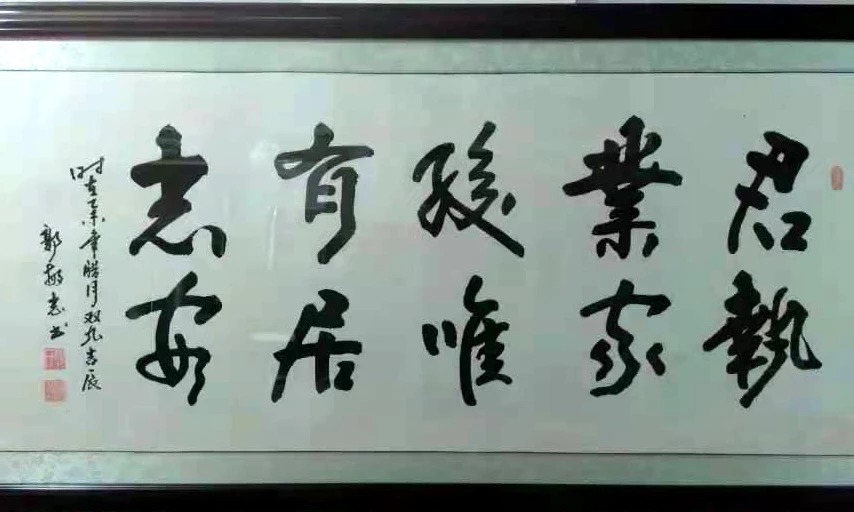 君執
業家
唯
有居
志安
时在乙未年腊月双九吉辰
郭志书